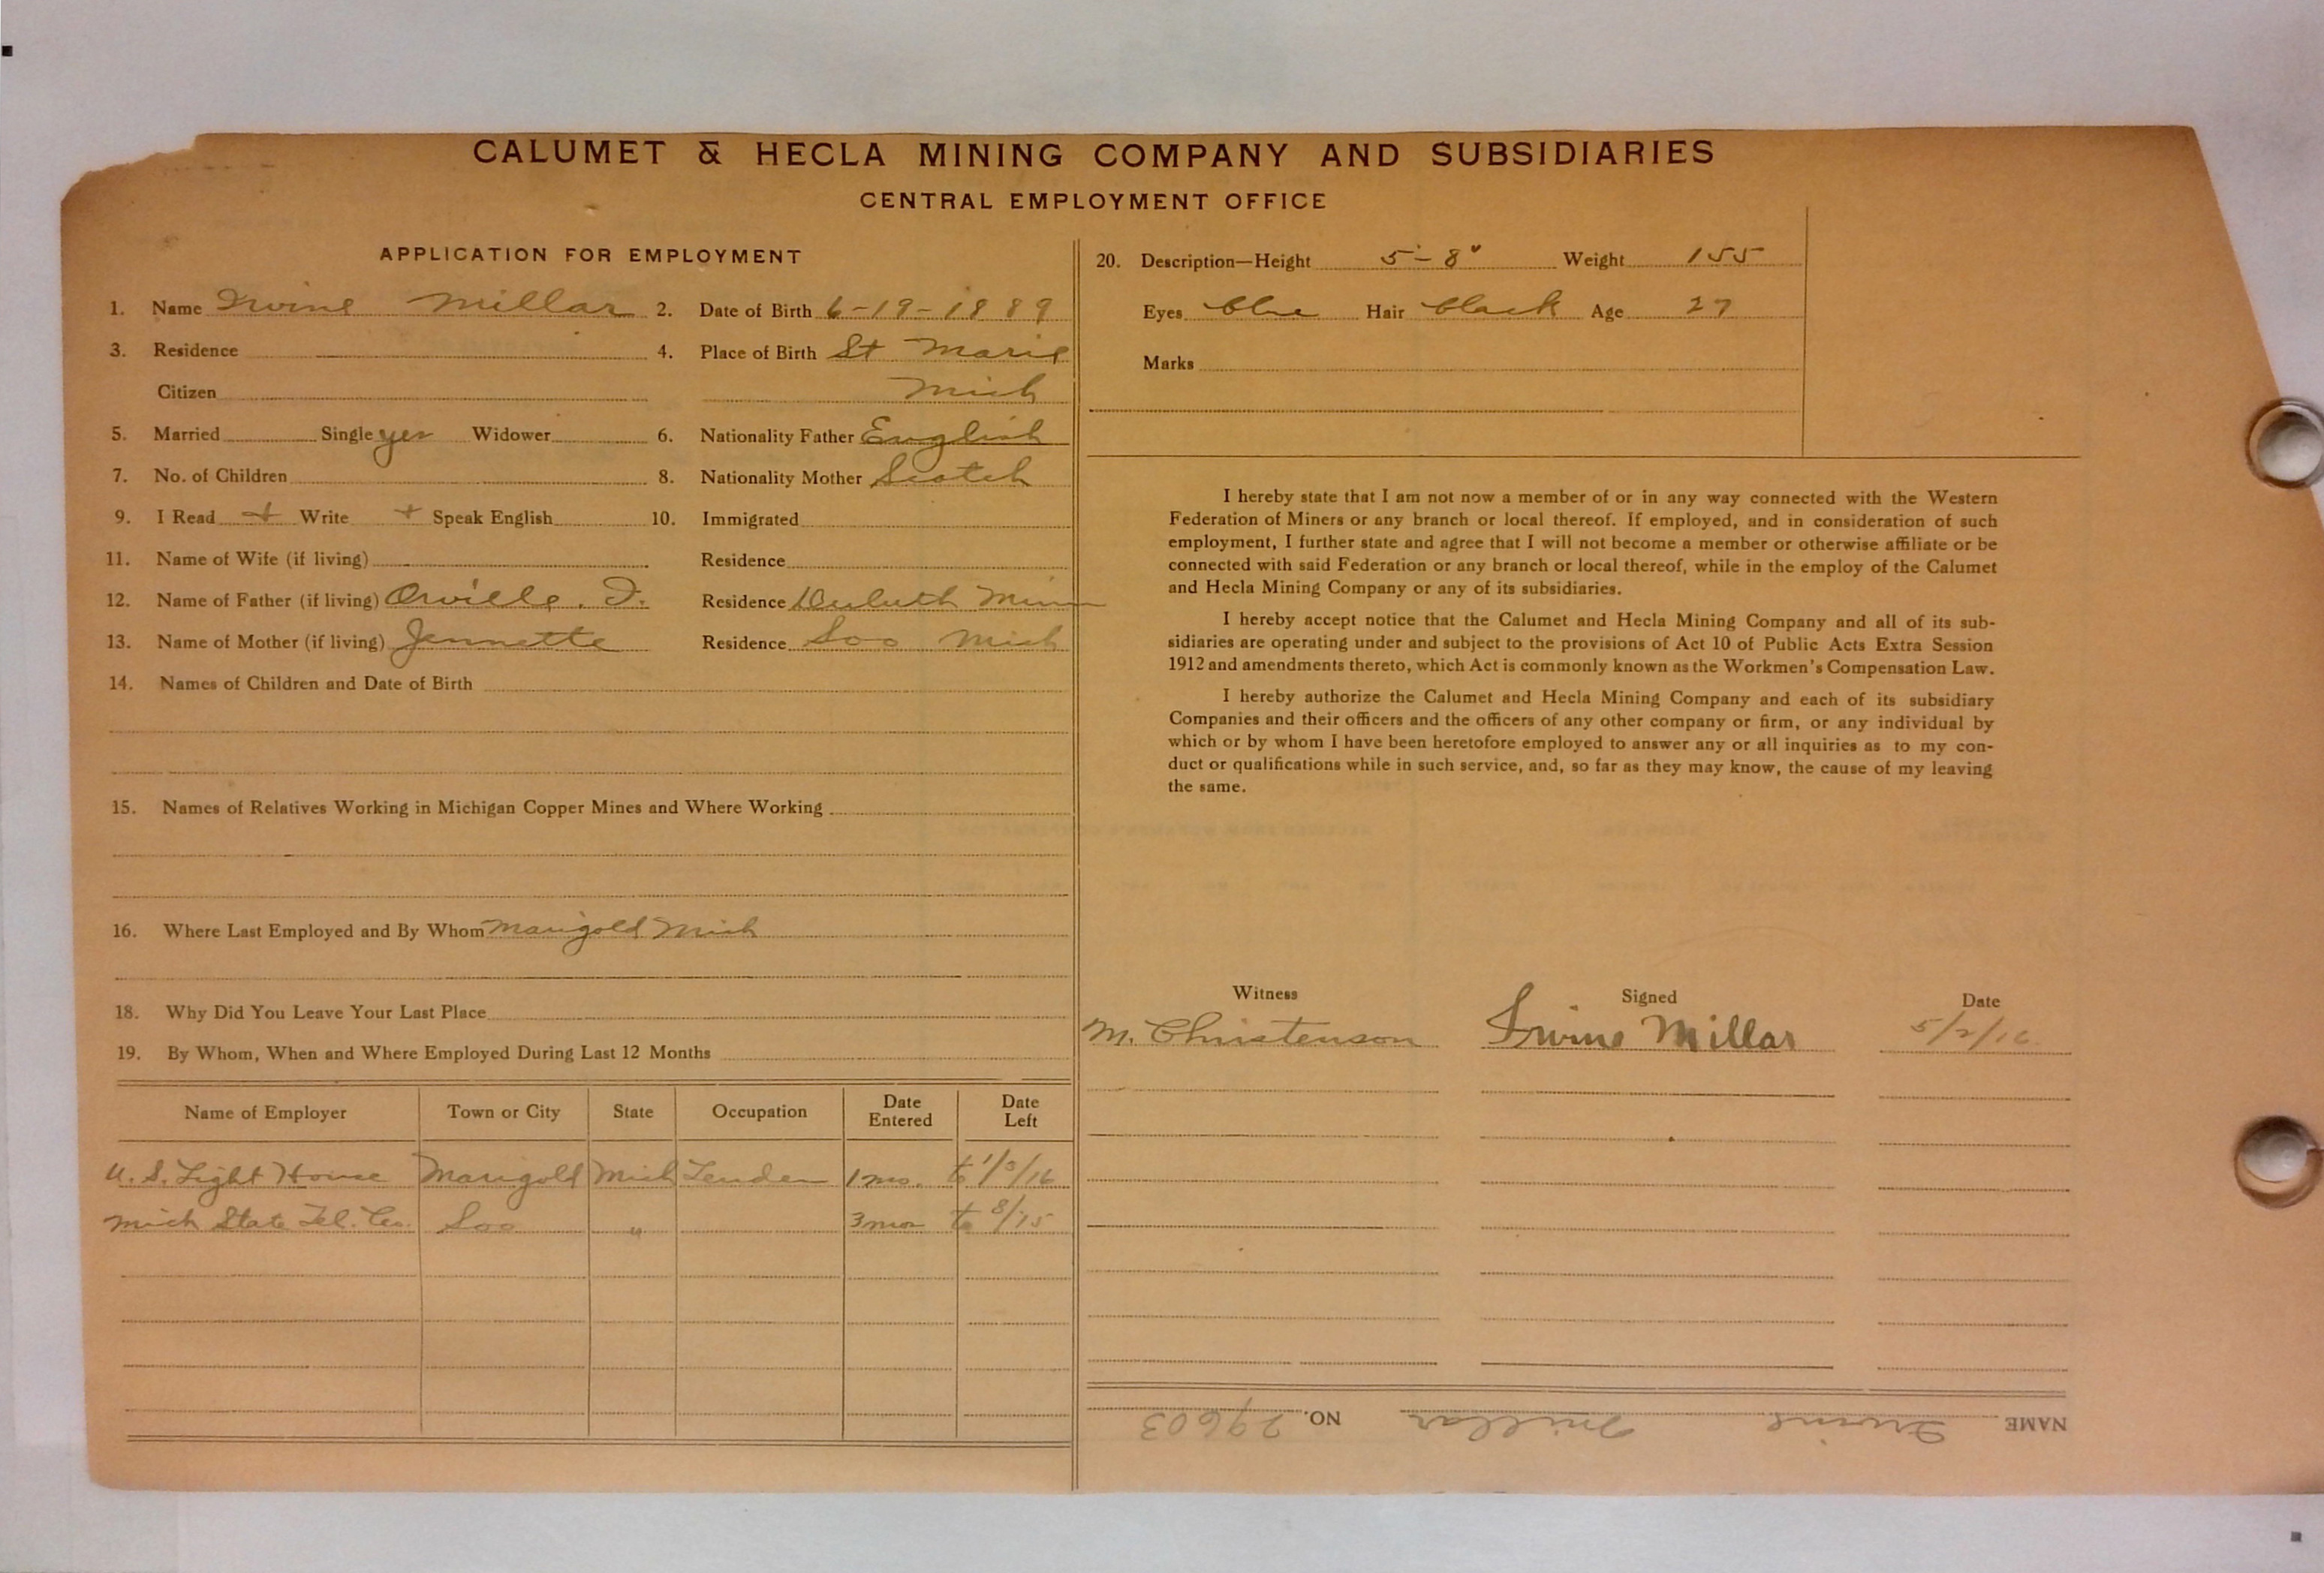 CALUMET & HECLA MINING COMPANY AND SUBSIDIARIES
CENTRAL EMPLOYMENT OFFICE
APPLICATION FOR EMPLOYMENT
1. Name Irvine Millar 2. Date of Birth 6-19-1889
3. Residence 4. Place of Birth St Marie
Citizen Mich
5. Married Single yes Widower 6. Nationality Father English
7. No. of Children 8. Nationality Mother Scotch
9. I Read + Write + Speak English 10. Immigrated
11. Name of Wife (if living) Residence
12. Name of Father (if living) Orville. D. Residence Duluth Minn
13. Name of Mother (if living) Jennette Residence Soo Mich
14. Names of Children and Date of Birth
15. Names of Relatives Working in Michigan Copper Mines and Where Working
16. Where Last Employed and By Whom Marigold Mich
18. Why Did You Leave Your Last Place
19. By Whom, When and Where Employed During Last 12 Months
Name of Employer Town or City State Occupation Date Entered Date Left
U. S. Light House Marigold Mich Tender 1 mo. to 1/3/16
Mich State Tel. Co. Soo " 3 mos to 8/15
20. Description—Height 5'-8" Weight 155
Eyes blue Hair black Age 27
Marks
I hereby state that I am not now a member of or in any way connected with the Western
Federation of Miners or any branch or local thereof. If employed, and in consideration of such
employment, I further state and agree that I will not become a member or otherwise affiliate or be
connected with said Federation or any branch or local thereof, while in the employ of the Calumet
and Hecla Mining Company or any of its subsidiaries.
I hereby accept notice that the Calumet and Hecla Mining Company and all of its sub-
sidiaries are operating under and subject to the provisions of Act 10 of Public Acts Extra Session
1912 and amendments thereto, which Act is commonly known as the Workmen's Compensation Law.
I hereby authorize the Calumet and Hecla Mining Company and each of its subsidiary
Companies and their officers and the officers of any other company or firm, or any individual by
which or by whom I have been heretofore employed to answer any or all inquiries as to my con-
duct or qualifications while in such service, and, so far as they may know, the cause of my leaving
the same.
Witness Signed Date
M. Christenson Irvine Millar 5/2/16
NAME Irvine Millar NO. 29603